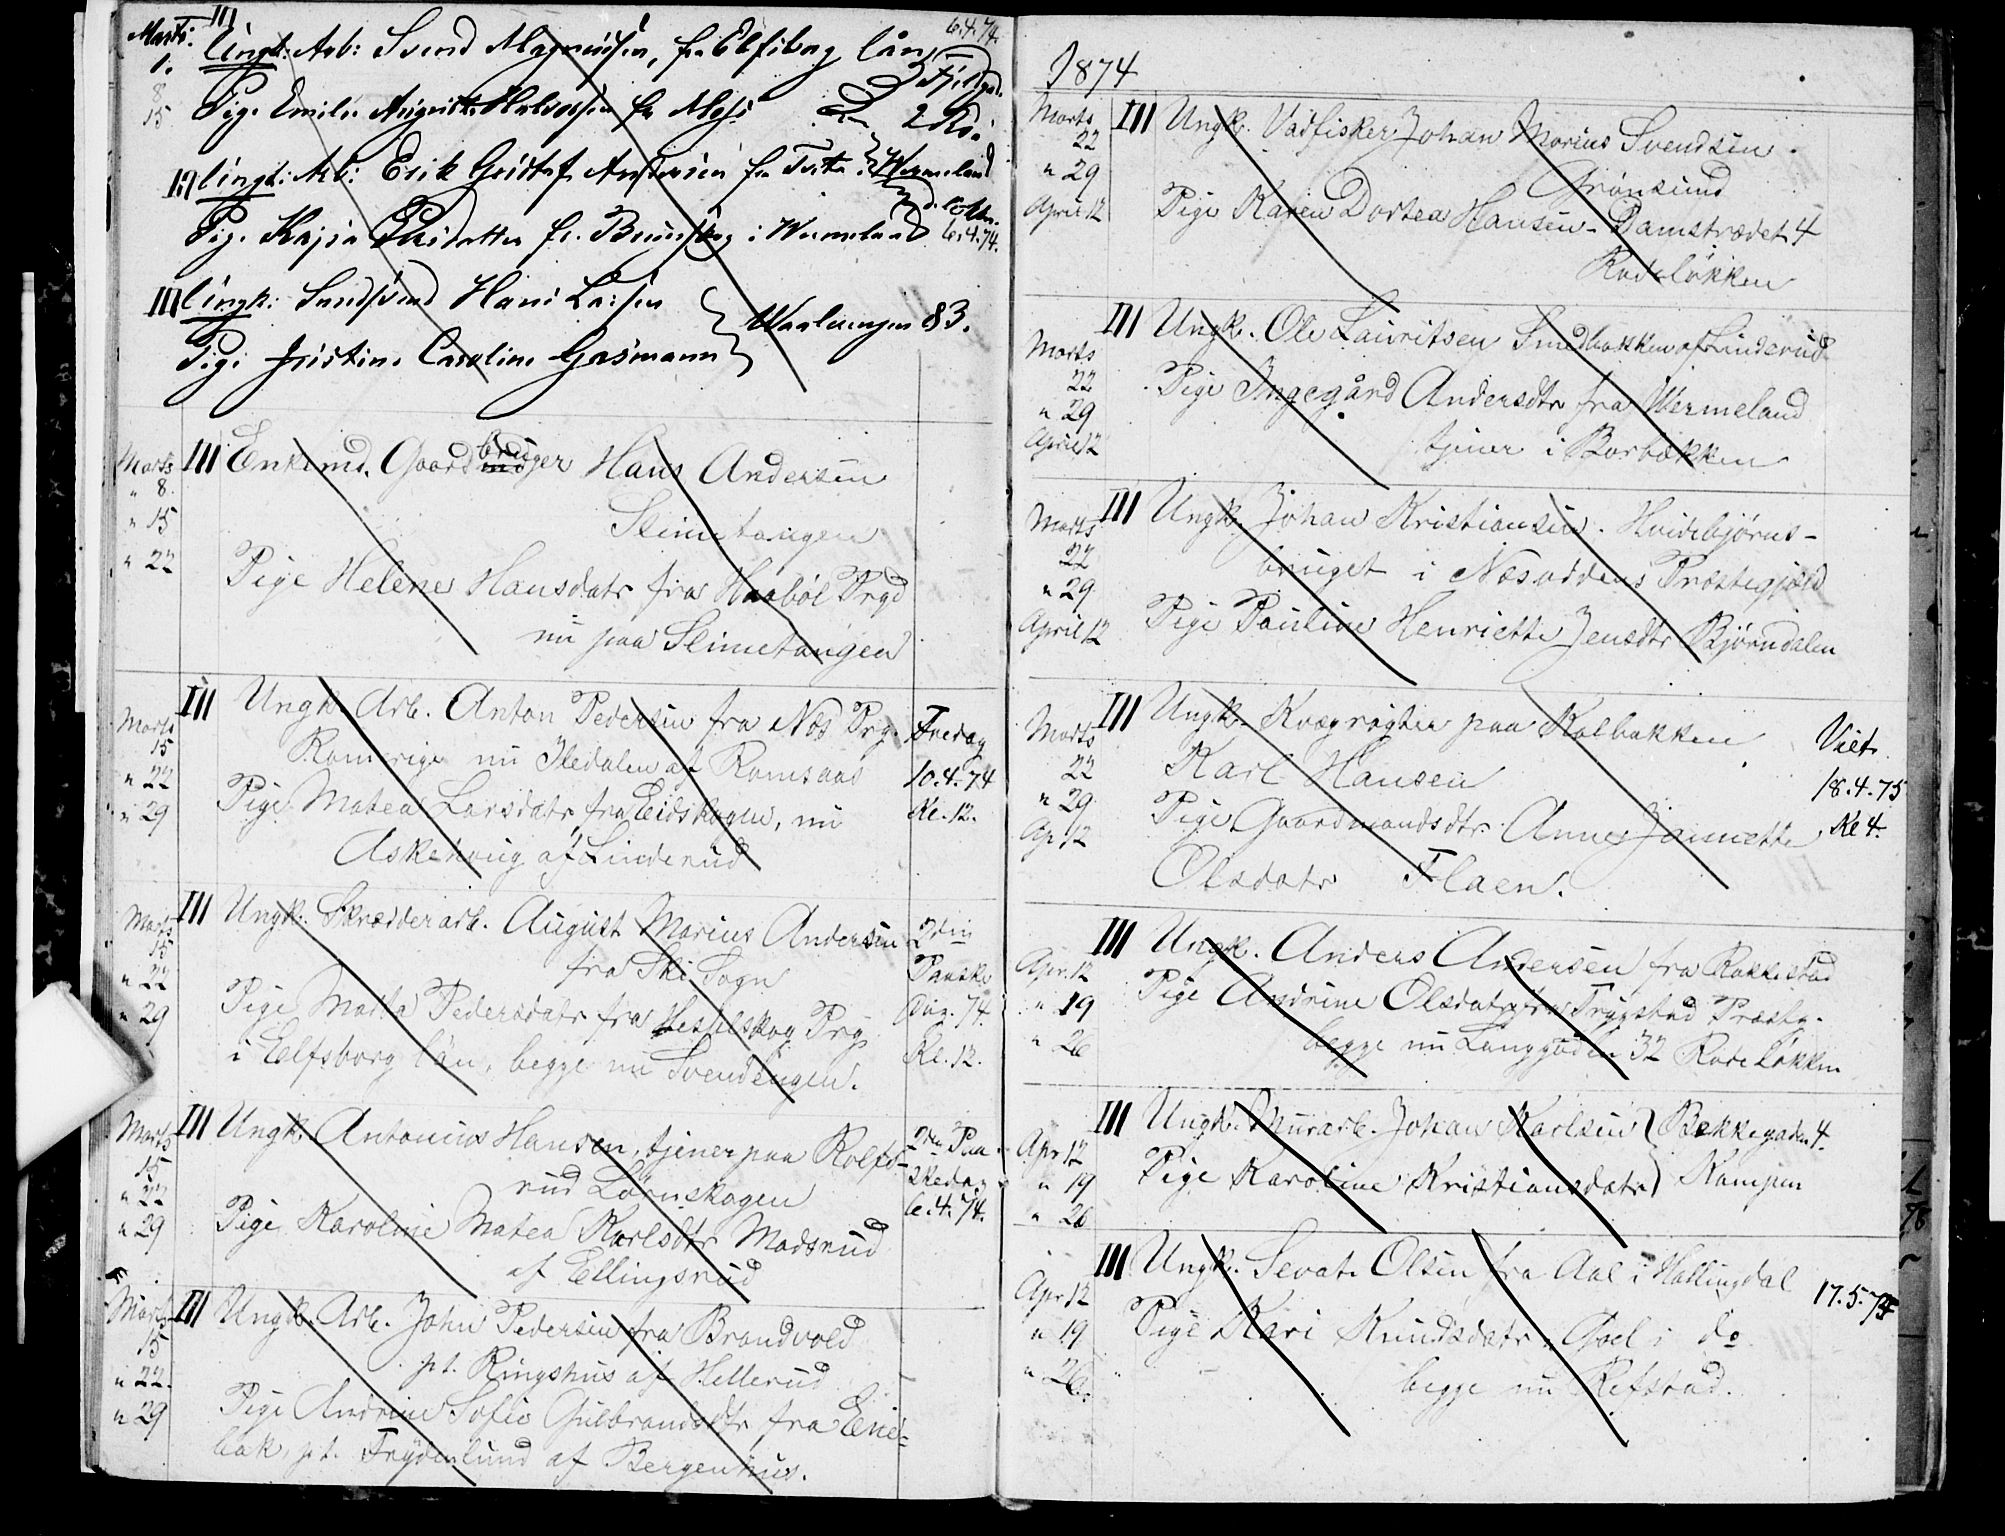 Marts. III 6.4.74.
1. Ungk: Arb: Svend Magnussen, fra Elfsborg län
8
15 Pige Emilie Augusta Halvorsen fra Moss 2
III Ungk: Arb: Erik Gustaf Andersen fra Wermeland
Pige Kajsa Persdatter fr. i Wermeland 6.4.74.
III Ungk: Hans Larsen
Waalerengen 83.
Pige Caroline Gasmann
Marts III Enkemd. Gaardbruger Hans Andersen
" 8.
" 15 Slimetangen
" 22 Pige Helene Hansdatr fra Haabøl Prgd
nu paa Slimetangen
Marts III Ungk. Arb. Anton Pedersen fra Næs Prg. Fredag
15 Romerige nu Iledalen af Ramsaas 10.4.74
" 22 Pige Matea Larsdatr fra Eidskogen, nu Kl. 12.
" 29 Askehoug af Linderud
Marts III Ungk. Skrædderarb. August Marius Andersen 2den
15 fra Ski Sogn Paaske
" 22 Pige Marta Pedersdatr fra Hesselskog Prg. Dag. 74.
" 29 i Elfsborg län, begge nu Svendengen. Kl. 12.
Marts III Ungk. Antonius Hansen, tjener paa Rolfs- 2den Paa-
15 rud Lørnskogen skedag
" 22 Pige Karoline Matea Karlsdtr Madsrud 6.4.74.
" 29 af Ellingsrud
Marts III Ungk. Arb. John Pedersen fra Brandvold
15 pt. Ringshus af Hellerud
" 22. Pige Andrine Sofie Gulbrandsdtr fra Ene-
" 29 bak, pt. Frydenlund af Bergenhus.
1874
Marts III Ungk. Vadfisker Johan Marius Svendsen.
22 Grønsund
" 29 Pige Karen Dortea Hansen - Damstrædet 4
April 12 Rodeløkken
Marts III Ungk. Ole Lauritsen Smedbakken af Linderud
22 Pige Ingegård Andersdtr fra Wermeland
" 29
April 12 tjener i Borbækken
Marts III Ungk. Johan Kristiansen. Hvidebjørns-
22 bruget i Næsoddens Præstegjæld
" 29 Pige Pauline Henriette Jensdtr Bjørndalen
April 12
Marts III Ungk. Kvægrøgter paa Kalbakken Viet
22 Karl Hansen 18.4.75
" 29 Pige Gaardmandsdtr. Anne Jannette Kl 4.
Ap. 12 Olsdatr Flaen.
Apr. 12 III Ungk. Anders Andersen fra Rakkestad
" 19 Pige Andrine Olsdatr fra Trygstad Præstg.
" 26 begge nu Langgaden 32 Rode Løkken
Apr 12 III Ungk. Murarb. Johan Karlsen Bekkegaden 4.
" 19 Pige Karoline Kristiansdatr Kampen
" 26
Apr 12 III Ungk. Sevat Olsen fra Aal i Hallingdal 17.5.74
" 19 Pige Kari Knudsdatr " Goel i do
" 26. begge nu Refstad.